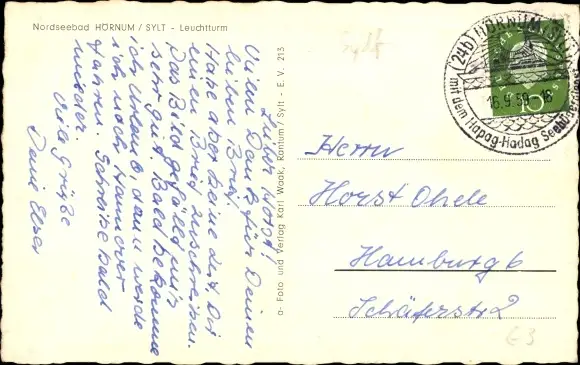 Nordseebad HÖRNUM / SYLT - Leuchtturm
Lieber Horst!
Vielen Dank für Deinen
lieben Brief.
Habe aber keine Lust, Dir
einen Brief zu schreiben.
Das Bad gefällt mir
sehr gut. Bald bekomme
ich Urlaub dann werde
ich nach Hannover
fahren. Schreibe bald
wieder.
Viele Grüße
Deine
a- Foto und Verlag Karl Waak, Rantum/Sylt - E.V. 213
Sylt
(24b) HÖRNUM (SYLT)
16.9.59-18
mit dem Hapag-Hadag Seebäderdienst
Herrn
Horst Ohde
Hamburg 6
Schäferstr 2